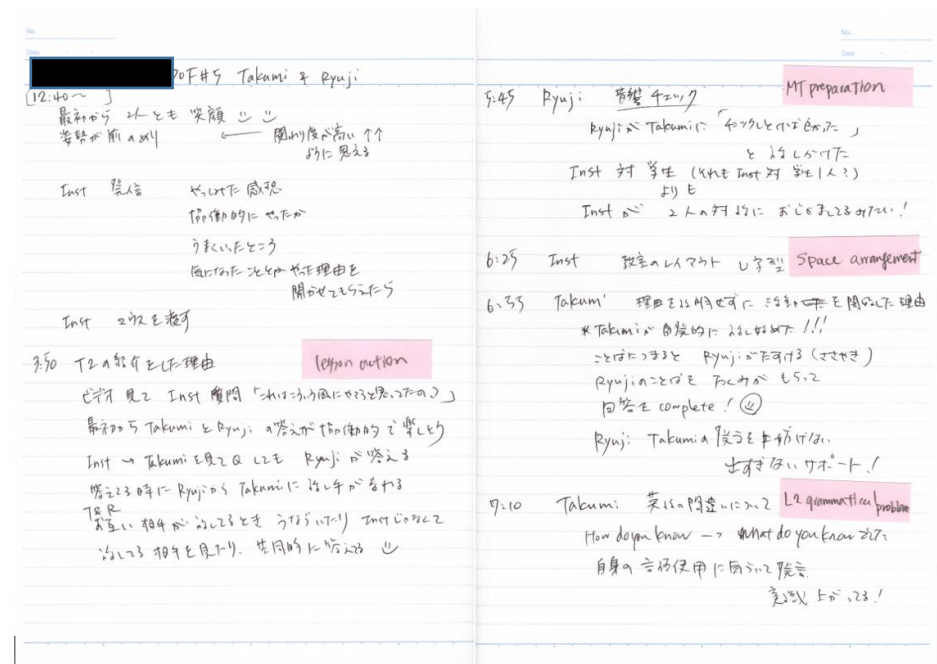 No.
Date
OF#5 Takumi & Ryuji
[12:40~ ]
最初から 2人とも 笑顔
姿勢が前のめり ← 関わり度が高い ↑↑
ように思える
Inst 発言 やってみた感想
協働的にやったか
うまくいったところ
気になったこととか やった理由を
聞かせてもらえたら
Inst マウスを渡す
3:50 T2の紹介をした理由
lesson action
ビデオ見て Inst 質問「これはこういう風にやろうと思ってたの?」
最初から Takumi と Ryuji の答えが協働的で楽しそう
Inst → Takumiを見てQしても Ryujiが答える
答えてる時にRyujiからTakumiに話し手が変わる
T&R
お互い相手が話してるとき うなづいたり Instじゃなくて
話してる相手を見たり、共同的に答えてる
No.
Date
MT preparation
5:45 Ryuji 音響チェック
RyujiがTakumiに「チェックしとけば良かった」
と話しかけた
Inst 対 学生 (それもInst 対 学生1人?)
よりも
Instが 2人の対話に おじゃましてるみたい!
6:25 Inst 教室のレイアウト U字型
Space arrangement
6:53 Takumi 理由を説明せずに 活動を開始した理由
*Takumiが自発的に話し始めた!!!
ことばにつまると Ryujiがたすける (ささやき)
Ryujiのことばを たくみが もらって
回答をcomplete!
Ryuji: Takumiの発言を妨げない
出すぎないサポート!
7:10 Takumi 英語の間違いについて
L2 grammatical problem
How do you know → What do you know
自身の言語使用に気づいて発言
意識上がってる!